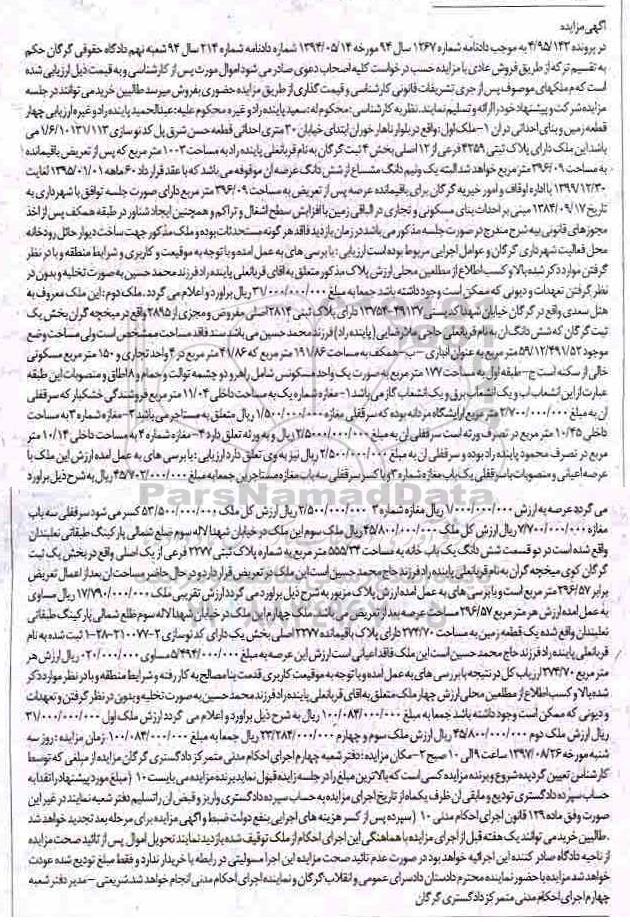 آگهی مزایده
در پرونده ۴/۹۵/۱۴۲ به موجب دادنامه شماره ۱۲۶۷ سال ۹۴ مورخه ۱۳۹۴/۰۵/۱۴ شماره دادنامه شماره ۲۱۴ سال ۹۴ شعبه نهم دادگاه حقوقی گرگان حکم
به تقسیم ترکه از طریق فروش عادی یا مزایده حسب درخواست کلیه اصحاب دعوی صادر می شود اموال مورث پس از کارشناسی و به قیمت ذیل ارزیابی شده
است که م ملکهای موصوف پس از جری تشریفات قانونی کارشناسی و قیمت گذاری از طریق مزایده حضوری بفروش میرسد طالبین خرید می توانند در جلسه
مزایده شرکت و پیشنهاد خود را ارائه و تسلیم نمایند. نظریه کارشناسی: محکوم له: سعید پاینده راد و غیره محکوم علیه: عبدالحمید پاینده راد و غیره ارزیابی چهار
قطعه زمین و بنای احداثی در آن ۱-ملک اول: واقع در بلوار ناهارخوران ابتدای خیابان ۳۰ متری احداثی قطعه حسن شرق پل کد نوسازی ۱/۶/۱۰۱۳۱/۱۱۳ می
باشد این ملک دارای پلاک ثبتی ۴۲۵۹ فرعی از ۱۲ اصلی بخش ۴ ثبت گرگان به نام قربانعلی پاینده راد به مساحت ۱۰۰۳ متر مربع که پس از تعریض باقیمانده
به مساحت ۳۹۶/۰۹ متر مربع خواهد شد البته یک ونیم دانگ مشاع از شش دانگ عرصه آن موقوفه می باشد که با عقد قرارداد ۶۰ ماهه ۱۳۹۵/۰۱/۰۱ لغایت
۱۳۹۹/۱۲/۳۰ با اداره اوقاف و امور خیریه گرگان برای باقیمانده عرصه پس از تعریض به مساحت ۳۹۶/۰۹ متر مربع دارای صورت جلسه توافق با شهرداری به
تاریخ ۱۳۸۴/۰۹/۱۷ مبنی بر احداث بنای مسکونی و تجاری در الباقی زمین با افزایش سطح اشغال و تراکم و همچنین ایجاد شناور در طبقه همکف پس از اخذ
مجوزهای قانونی به شرح مندرج در صورت جلسه مذکور می باشد در زمان بازدید فاقد هر گونه مستحدثات بوده و ملک مذکور جهت ساخت دیوار حائل رودخانه
محل فعالیت شهرداری گرگان و عوامل اجرایی مربوط بوده است ارزیابی: با بررسی های به عمل آمده و با توجه به موقعیت و کاربری و شرایط منطقه و با در نظر
گرفتن موارد ذکر شده بالا و کسب اطلاع از مطلعین محلی ارزش پلاک مذکور متعلق به آقای قربانعلی پاینده راد فرزند محمد حسین به صورت تخلیه و بدون در
نظر گرفتن تعهدات و دیونی که ممکن است وجود داشته باشد جمعا به مبلغ ۳۱/۰۰۰/۰۰۰/۰۰۰ ریال برآورد و اعلام می گردد. ملک دوم: این ملک معروف به
هتل سعدی واقع در گرگان خیابان شهدا کد پستی ۴۹۱۳۷-۱۳۷۵۴ دارای پلاک ثبتی ۲۸۱۴ اصلی مفروض و مجزی از ۲۸۹۵ واقع در میخچه گران بخش یک
ثبت گرگان که شش دانگ آن به نام قربانعلی حاجی ملارضایی (پاینده راد) فرزند محمد حسین می باشد سند فاقد مساحت مشخص است ولی مساحت وضع
خالی از سکنه است ج-طبقه اول به مساحت ۱۷۷ متر مربع به صورت یک واحد مسکونی شامل راهرو دو چشمه توالت و حمام و ۸ اطاق و منصوبات این طبقه
عبارت از این انشعاب آب و یک انشعاب برق و یک انشعاب گاز می باشد ۱-مغازه شماره یک به مساحت داخلی ۱۱/۰۴ متر مربع فروشندگی خشکبار که سرقفلی
داخلی ۱۰/۴۵ متر مربع در تصرف ورثه است سرقفلی آن به مبلغ ۲/۵۰۰۰/۰۰۰/۰۰۰ ریال و به ورثه تعلق دارد ۴-مغازه شماره ۴ به مساحت داخلی ۱۰/۱۴ متر
مربع در تصرف محمود پاینده راد بوده و سرقفلی آن به مبلغ ۲/۵۰۰/۰۰۰/۰۰۰ ریال نیز به وی تعلق دارد ارزیابی: با بررسی های به عمل آمده ارزش این ملک با
عرصه اعیانی و منصوبات با سرقفلی یک باب مغازه شماره ۳ و با کسر سرقفلی سه باب مغازه مستاجرین جمعا به مبلغ ۴۵/۷۰۲/۰۰۰/۰۰۰ ریال به شرح ذیل برآورد
مغازه ۷/۷۰۰/۰۰۰/۰۰۰ ریال ارزش کل ملک ۴۵/۸۰۰/۰۰۰/۰۰۰ ریال ملک سوم این ملک در خیابان شهدا لاله سوم ضلع شمالی پارکینگ طبقاتی نعلبندان
واقع شده است در دو قسمت شش دانگ یک باب خانه به مساحت ۵۵۵/۳۴ متر مربع به شماره پلاک ثبتی ۲۲۷۷ فرعی از یک اصلی واقع در بخش یک ثبت
گرگان کوی میخچه گران به نام قربانعلی پاینده راد فرزند حاج محمد حسین است این ملک در تعریض قرار دارد و در حال حاضر مساحت آن بعد از اعمال تعریض
برابر ۲۹۶/۵۷ متر مربع است و با بررسی های به عمل آمده ارزش پلاک مزبور به شرح ذیل برآورد می گردد ارزش تقریبی ملک ۱۷/۷۹۰/۰۰۰/۰۰۰ ریال مساوی
به عمل آمده ارزش هر متر مربع ۲۹۶/۵۷ مساحت عرصه بعد از تعریض می باشد. ملک چهارم این ملک در خیابان شهدا لاله سوم ظلع شمالی پارکینگ طبقاتی
نعلبندان واقع شده یک قطعه زمین به مساحت ۲۷۴/۷۰ دارای پلاک باقیمانده ۲۲۷۷ اصلی بخش یک دارای کد نوسازی ۲-۲۱۰۰۷۷-۲۸-۱ ثبت شده به نام
قربانعلی پاینده راد فرزند حاج محمد حسین است این ملک فاقد اعیانی است ارزش این عرصه به مبلغ ۵/۴۹۴/۰۰۰/۰۰۰ مساوی ۰۲۰/۰۰۰/۰۰۰ ریال ارزش هر
متر مربع ۲۷۴/۷۰ ارزیاب کل در نتیجه با بررسی های به عمل آمده و با توجه به موقعیت کاربری قدمت بنا مصالح به کار رفته و شرایط منطقه و با در نظر موارد ذکر
شده بالا و کسب اطلاع از مطلعین محلی ارزش چهار ملک متعلق به آقای قربانعلی پاینده راد فرزند محمد حسین به صورت تخلیه و بدون در نظر گرفتن و تعهدات
و دیونی که ممکن است وجود داشته باشد جمعا به مبلغ ۱۰۰/۰۸۴/۰۰۰/۰۰۰ ریال به شرح ذیل برآورد و اعلام می گردد ارزش ملک اول ۳۱/۰۰۰/۰۰۰/۰۰۰
ریال ارزش ملک دوم ۴۵/۸۰۰/۰۰۰/۰۰۰ ریال ارزش ملک سوم و چهارم ۲۳/۲۸۴/۰۰۰/۰۰۰ ریال جمعا به مبلغ ۱۰۰/۰۸۴/۰۰۰/۰۰۰. زمان مزایده: روز سه
شنبه مورخه ۱۳۹۷/۰۸/۲۶ ساعت ۹ الی ۱۰ صبح ۲-مکان مزایده: دفتر شعبه چهارم اجرای احکام مدنی متمرکز دادگستری گرگان مزایده از مبلغی که توسط
کارشناس تعیین گردیده شروع و برنده مزایده کسی است که بالاترین مبلغ را در جلسه زایده قبول نماید برنده مزایده می بایست ۱۰٪ (مبلغ مورد پیشنهاد را نقدا به
حساب سپرده دادگستری تودیع و مابقی آن ظرف یکماه از تاریخ اجرای مزایده به حساب سپرده دادگستری واریز و قبض آن را تسلیم دفتر شعبه نمایند در غیر این
صورت وفق ماده ۱۲۹ قانون اجرای احکام مدنی ۱۰٪ (سپرده پس از کسر هزینه های اجرایی بنفع دولت ضبط و آگهی مزایده برای مرحله بعد تجدید خواهد شد
.طالبین خرید می توانند یک هفته قبل از اجرای مزایده با هماهنگی این اجرای احکام از ملک توقیف شده بازدید نمایند تحویل اموال پس از تائید صحت مزایده
از ناحیه دادگاه صادر کننده این اجرائیه خواهد بود در صورت عدم تائید صحت مزایده این اجرا مسولیتی در رابطه با خریدار ندارد و فقط مبلغ تودیع شده عودت
خواهد شد مزایده با حضور نماینده محترم دادستان دادسرای عمومی و انقلاب گرگان و نماینده اجرای احکام مدنی انجام خواهد شد. شریعتی-مدیر دفتر شعبه
چهارم اجرای احکام مدنی متمرکز دادگستری گرگان
ParsNamadData